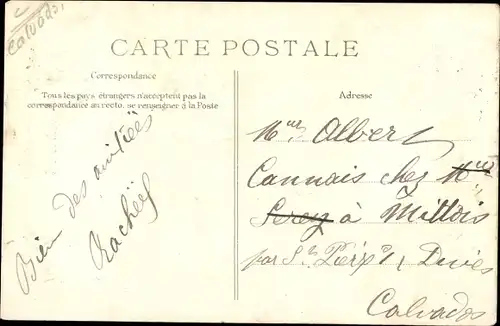 Calvados
CARTE POSTALE
Correspondance
Tous les pays étrangers n'acceptent pas la
correspondance au recto. se renseigner à la Poste
Bien des amitiées
Rachel
Adresse
Albert
Cannais chez
à Mittois
par St Pierre s, Dives
Calvados